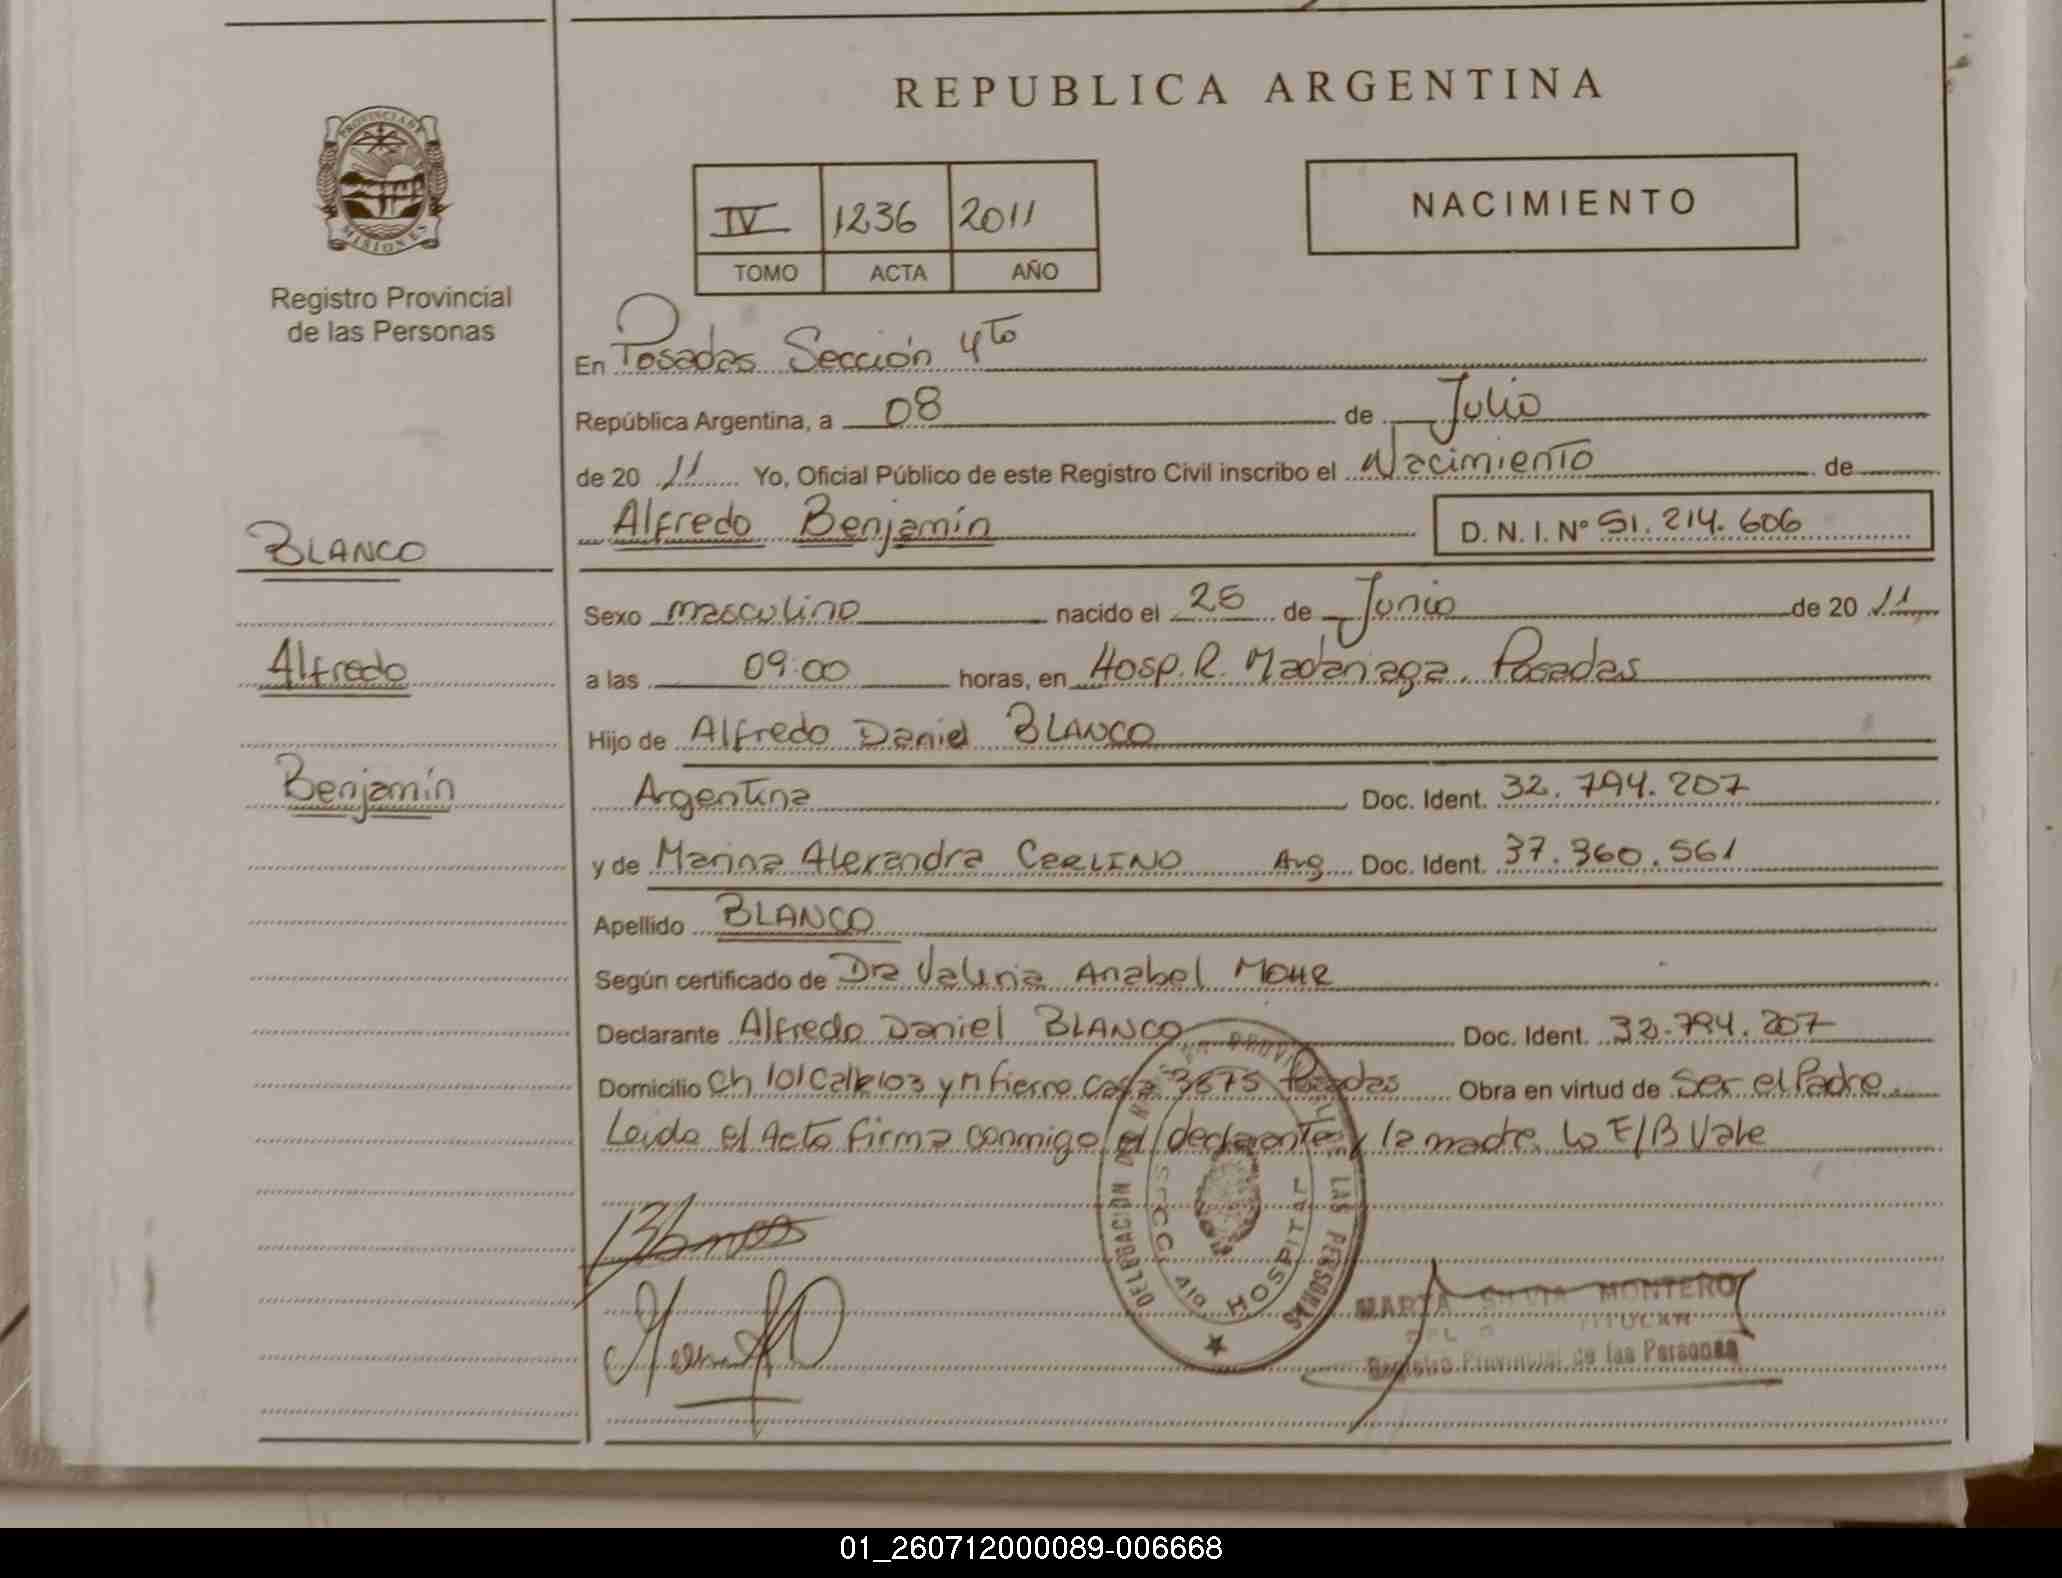 REPUBLICA ARGENTINA
PROVINCIA DE
MISIONES
Registro Provincial
de las Personas
IV 1236 2011
TOMO ACTA AÑO
NACIMIENTO
En Posadas Sección 4to
República Argentina, a 08 de Julio
de 20 11 Yo, Oficial Público de este Registro Civil inscribo el Nacimiento de
Alfredo Benjamín D. N. I. Nº 51.214.606
BLANCO
Alfredo
Benjamín
Sexo masculino nacido el 25 de Junio de 20 11
a las 09:00 horas, en Hosp. R. Madariaga. Posadas
Hijo de Alfredo Daniel BLANCO
Argentina Doc. Ident. 32.794.207
y de Marina Alexandra CERLINO Arg Doc. Ident. 37.360.561
Apellido BLANCO
Según certificado de Dra Valeria Anabel MOHR
Declarante Alfredo Daniel BLANCO Doc. Ident. 32.794.207
Domicilio Ch 101 Calle 103 y M fierro Casa 3875 Posadas Obra en virtud de Ser el Padre
Leida el Acta firma conmigo el declarante y la madre. Lo E/B Vale
DELEGACION LAS PERSONAS
HOSPITAL
MARTA SILVIA MONTERO
Registro Provincial de las Personas
01_260712000089-006668